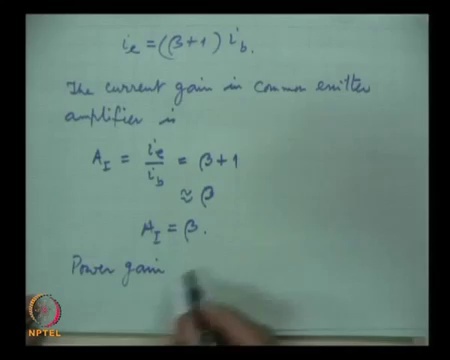 i_e = (β+1) i_b.
The current gain in common emitter
amplifier is
A_I = i_e / i_b = β+1
≈ β
A_I = β.
Power gain
NPTEL